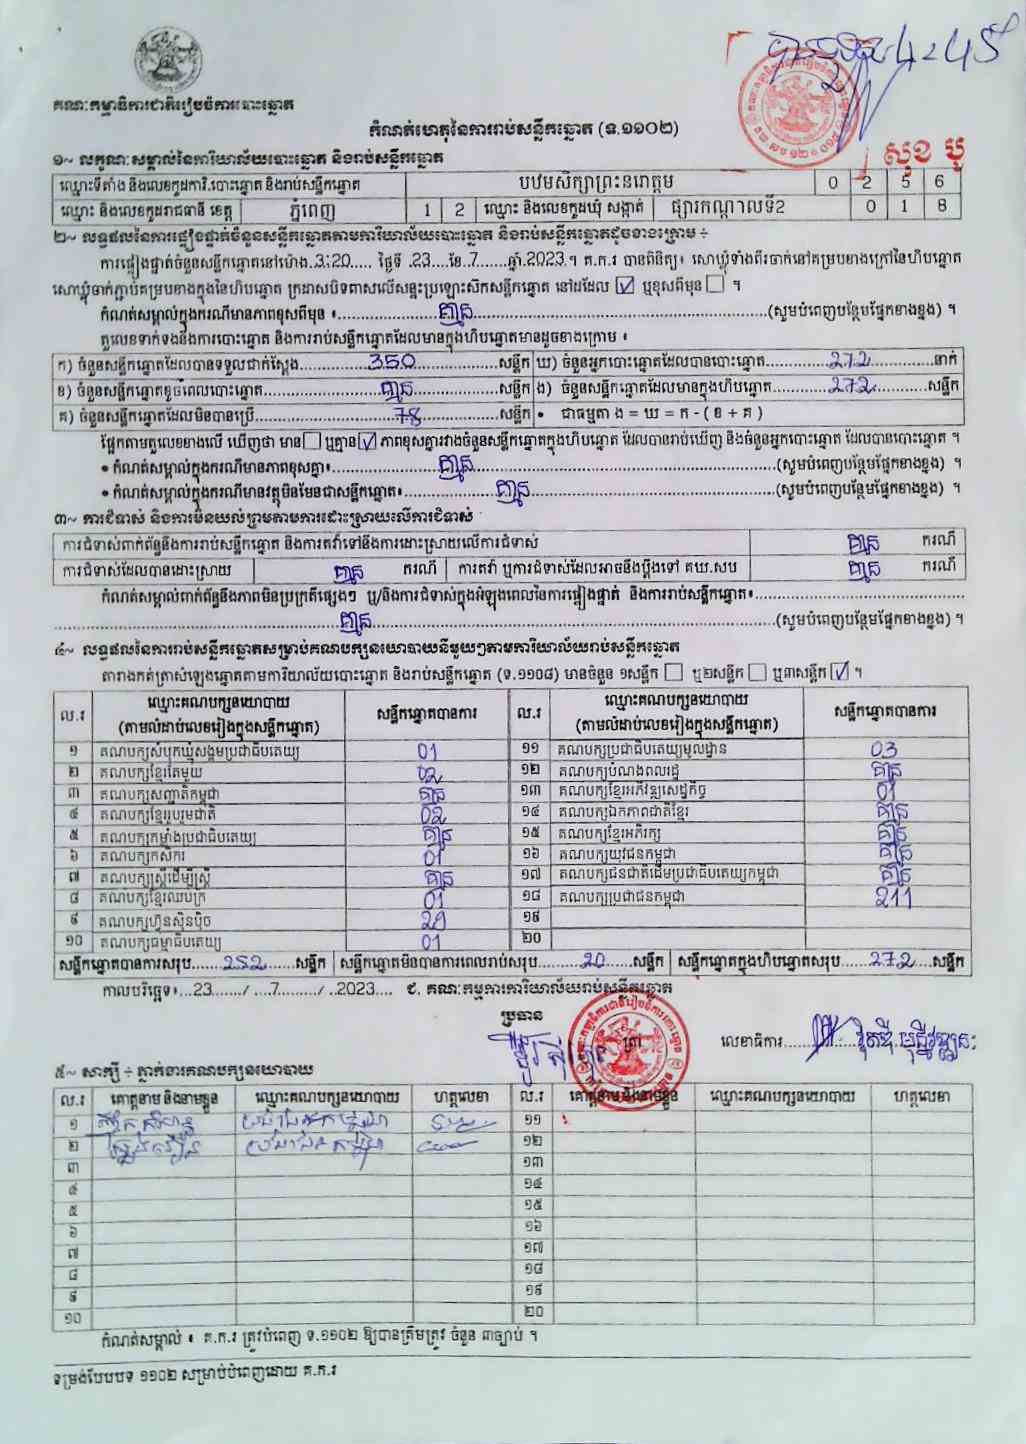 គណៈកម្មាធិការជាតិរៀបចំការបោះឆ្នោត
កំណត់ហេតុនៃការរាប់សន្លឹកឆ្នោត (ទ.១១០២)
សុខ បូ
១~ លក្ខណៈសម្គាល់នៃការិយាល័យបោះឆ្នោត និងរាប់សន្លឹកឆ្នោត
ឈ្មោះទីតាំង និងលេខកូដការិ.បោះឆ្នោត និងរាប់សន្លឹកឆ្នោត បឋមសិក្សាព្រះនរោត្តម 0 2 5 6
ឈ្មោះ និងលេខកូដរាជធានី ខេត្ត ភ្នំពេញ 1 2 ឈ្មោះ និងលេខកូដឃុំ សង្កាត់ ផ្សារកណ្ដាលទី2 0 1 8
២~ លទ្ធផលនៃការផ្ទៀងផ្ទាត់ចំនួនសន្លឹកឆ្នោតតាមការិយាល័យបោះឆ្នោត និងរាប់សន្លឹកឆ្នោតដូចខាងក្រោម ÷
ការផ្ទៀងផ្ទាត់ចំនួនសន្លឹកឆ្នោតនៅម៉ោង.3:20..... ថ្ងៃទី .23....ខែ.7......ឆ្នាំ.2023.។ គ.ក.រ បានពិនិត្យ៖ សោឃ្លុំទាំងពីរចាក់នៅគម្របខាងក្រៅនៃហិបឆ្នោត
សោឃ្លុំចាក់ភ្ជាប់គម្របខាងក្នុងនៃហិបឆ្នោត ក្រដាសបិទពាសលើសន្លះប្រឡោះសិកសន្លឹកឆ្នោត នៅដដែល ☑ ឬខុសពីមុន ☐ ។
កំណត់សម្គាល់ក្នុងករណីមានភាពខុសពីមុន ៖ គ្មាន (សូមបំពេញបន្ថែមផ្នែកខាងខ្នង) ។
តួលេខទាក់ទងនឹងការបោះឆ្នោត និងការរាប់សន្លឹកឆ្នោតដែលមានក្នុងហិបឆ្នោតមានដូចខាងក្រោម ៖
ក) ចំនួនសន្លឹកឆ្នោតដែលបានទទួលជាក់ស្ដែង 350 សន្លឹក ឃ) ចំនួនអ្នកបោះឆ្នោតដែលបានបោះឆ្នោត 272 នាក់
ខ) ចំនួនសន្លឹកឆ្នោតខូចពេលបោះឆ្នោត គ្មាន សន្លឹក ង) ចំនួនសន្លឹកឆ្នោតដែលមានក្នុងហិបឆ្នោត 272 សន្លឹក
គ) ចំនួនសន្លឹកឆ្នោតដែលមិនបានប្រើ 78 សន្លឹក • ជាធម្មតា ង = ឃ = ក - ( ខ + គ )
ផ្អែកតាមតួលេខខាងលើ ឃើញថា មាន ☐ ឬគ្មាន ☑ ភាពខុសគ្នារវាងចំនួនសន្លឹកឆ្នោតក្នុងហិបឆ្នោត ដែលបានរាប់ឃើញ និងចំនួនអ្នកបោះឆ្នោត ដែលបានបោះឆ្នោត ។
• កំណត់សម្គាល់ក្នុងករណីមានភាពខុសគ្នា៖ គ្មាន (សូមបំពេញបន្ថែមផ្នែកខាងខ្នង) ។
• កំណត់សម្គាល់ក្នុងករណីមានវត្ថុមិនមែនជាសន្លឹកឆ្នោត៖ គ្មាន (សូមបំពេញបន្ថែមផ្នែកខាងខ្នង) ។
៣~ ការជំទាស់ និងការមិនយល់ព្រមតាមការដោះស្រាយលើការជំទាស់
ការជំទាស់ពាក់ព័ន្ធនឹងការរាប់សន្លឹកឆ្នោត និងការតវ៉ាទៅនឹងការដោះស្រាយលើការជំទាស់ គ្មាន ករណី
ការជំទាស់ដែលបានដោះស្រាយ គ្មាន ករណី ការតវ៉ា ឬការជំទាស់ដែលអាចនឹងប្ដឹងទៅ គឃ.សប គ្មាន ករណី
កំណត់សម្គាល់ពាក់ព័ន្ធនឹងភាពមិនប្រក្រតីផ្សេងៗ ឬ/និងការជំទាស់ក្នុងអំឡុងពេលនៃការផ្ទៀងផ្ទាត់ និងការរាប់សន្លឹកឆ្នោត៖
គ្មាន (សូមបំពេញបន្ថែមផ្នែកខាងខ្នង) ។
៤~ លទ្ធផលនៃការរាប់សន្លឹកឆ្នោតសម្រាប់គណបក្សនយោបាយនីមួយៗតាមការិយាល័យរាប់សន្លឹកឆ្នោត
តារាងកត់ត្រាសំឡេងឆ្នោតតាមការិយាល័យបោះឆ្នោត និងរាប់សន្លឹកឆ្នោត (ទ.១១០៨) មានចំនួន ១សន្លឹក ☐ ឬ២សន្លឹក ☐ ឬ៣សន្លឹក ☑ ។
ល.រ ឈ្មោះគណបក្សនយោបាយ (តាមលំដាប់លេខរៀងក្នុងសន្លឹកឆ្នោត) សន្លឹកឆ្នោតបានការ ល.រ ឈ្មោះគណបក្សនយោបាយ (តាមលំដាប់លេខរៀងក្នុងសន្លឹកឆ្នោត) សន្លឹកឆ្នោតបានការ
១ គណបក្សសំបុកឃ្មុំសង្គមប្រជាធិបតេយ្យ 01 ១១ គណបក្សប្រជាធិបតេយ្យមូលដ្ឋាន 03
២ គណបក្សខ្មែរតែមួយ 02 ១២ គណបក្សបំណងពលរដ្ឋ គ្មាន
៣ គណបក្សសញ្ជាតិកម្ពុជា គ្មាន ១៣ គណបក្សខ្មែរអភិវឌ្ឍសេដ្ឋកិច្ច 01
៤ គណបក្សខ្មែររួបរួមជាតិ 02 ១៤ គណបក្សឯកភាពជាតិខ្មែរ គ្មាន
៥ គណបក្សកម្លាំងប្រជាធិបតេយ្យ គ្មាន ១៥ គណបក្សខ្មែរអភិរក្ស គ្មាន
៦ គណបក្សកសិករ 01 ១៦ គណបក្សយុវជនកម្ពុជា គ្មាន
៧ គណបក្សស្ត្រីដើម្បីស្ត្រី គ្មាន ១៧ គណបក្សជនជាតិដើមប្រជាធិបតេយ្យកម្ពុជា គ្មាន
៨ គណបក្សខ្មែរឈប់ក្រ 01 ១៨ គណបក្សប្រជាជនកម្ពុជា 211
៩ គណបក្សហ៊្វុនស៊ិនប៉ិច 29 ១៩
១០ គណបក្សធម្មាធិបតេយ្យ 01 ២០
សន្លឹកឆ្នោតបានការសរុប 252 សន្លឹក សន្លឹកឆ្នោតមិនបានការពេលរាប់សរុប 20 សន្លឹក សន្លឹកឆ្នោតក្នុងហិបឆ្នោតសរុប 272 សន្លឹក
កាលបរិច្ឆេទ៖...23......./....7......../..2023.... ជ. គណៈកម្មការការិយាល័យរាប់សន្លឹកឆ្នោត
ប្រធាន
លេខាធិការ
៥~ សាក្សី ÷ ភ្នាក់ងារគណបក្សនយោបាយ
ល.រ គោត្តនាម និងនាមខ្លួន ឈ្មោះគណបក្សនយោបាយ ហត្ថលេខា ល.រ គោត្តនាម និងនាមខ្លួន ឈ្មោះគណបក្សនយោបាយ ហត្ថលេខា
១ ១១
២ ១២
៣ ១៣
៤ ១៤
៥ ១៥
៦ ១៦
៧ ១៧
៨ ១៨
៩ ១៩
១០ ២០
កំណត់សម្គាល់ ៖ គ.ក.រ ត្រូវបំពេញ ទ.១១០២ ឱ្យបានត្រឹមត្រូវ ចំនួន ៣ច្បាប់ ។
ទម្រង់បែបបទ ១១០២ សម្រាប់បំពេញដោយ គ.ក.រ